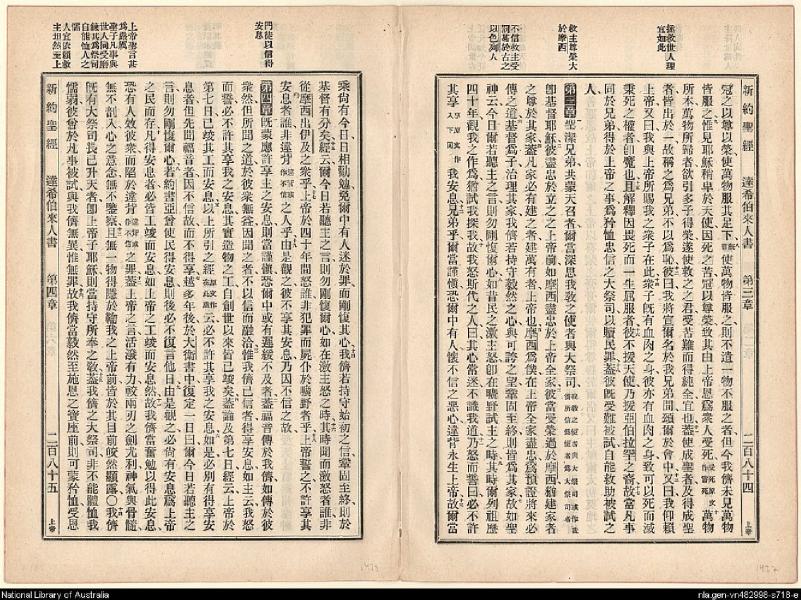 拯救世人理
宜如此
救主尊榮大
於摩西
不信救主受
以色列人
新約聖經 達希伯來人書 第三章 二百八十四
冠之以尊以榮使萬物服其足下
使萬物皆服之則不遺一物不服之者但今我儕未見萬物
皆服之惟見耶穌稍卑於天使因死之苦冠以尊榮致其由上帝恩爲衆人受死
所本萬物所歸者欲引多子得榮遂使救之之君受苦難而得純全宜也蓋使成聖者及得成聖
者皆出於一故稱之爲兄弟不以爲恥彼曰我將宣爾名於我兄弟間頌爾於會中又曰我仰賴
上帝又曰我與上帝所賜我之衆子在此衆子旣有血肉之身彼亦有血肉之身致可以死而滅
秉死之權者卽魔也且解釋因畏死而一生屈服者彼不援天使乃援亞伯拉罕之裔故當凡事
同於兄弟得於上帝之事爲矜恤忠信之大祭司以贖民罪蓋彼旣受難被試自能救助被試之
人
第三章 聖潔兄弟共蒙天召者爾當深思我敎之使者與大祭司
卽基督耶穌彼盡忠於立之之上帝前如摩西盡忠於上帝全家彼當受榮過於摩西猶建家者
之尊於其家蓋凡家必有建之者建萬有者上帝也摩西爲僕在上帝全家盡忠爲預證將來必
傳之道基督爲子治理其家我儕若持守毅然之心與可誇之望鞏固至終則皆爲其家故如聖
神云今日爾若聽主之言則勿剛愎爾心如昔民之激主怒卽在曠野試主之時其時爾列祖歷
四十年觀我之作爲猶試我探我故我怒斯代之人曰其心常迷不識我道乃怒而誓曰必不許
其享我安息兄弟乎爾當謹愼恐爾中有人懷不信之惡心違背永生上帝故爾當
門徒以信得
安息
上帝聖言甚
爲嚴厲
聖子凡事與
世人同受磨
鍊其爲祭司
自能恤人之
懦
人宜依賴救
主坦然至上
乘尙有今日日相勸勉免爾中有人迷於罪而剛愎其心我儕若持守始初之信鞏固至終則於
基督有分矣經云爾今日若聽主之言則勿剛愎爾心如在激主怒之時其時聞而激怒者誰非
從摩西出伊及之衆乎上帝於四十年間怒誰非犯罪而屍仆於曠野者乎上帝誓之不許享其
安息者誰非違背之人乎由是觀之彼不享其安息乃因不信之故
第四章 旣蒙應許享主之安息則當謹愼恐爾中或有遲緩不及者蓋福音傳於我儕如傳於彼
衆然但所聞之道於彼衆無益因聞之者不以信而融洽惟我儕已信者得享安息如主云我怒
而誓必不許其享我之安息其實造物之工自創世以來皆已竣矣蓋論及第七日經云上帝於
第七日已竣其工而安息以上所引之經云必不許其享我之安息如是必別有得享安
息者但先聞福音者因不信故而不得享越多年後於大衛書中復定一日曰爾今日若聽主之
言則勿剛愎爾心若約書亞曾使民得安息則後必不復言他日由是觀之必尙有安息爲上帝
之民而存凡得安息者必皆工竣而安息如上帝之工竣而安息然故我儕當奮勉以得此安息
恐有人效彼衆而陷於違背之罪蓋上帝之言活潑有力較兩刃之劍尤利神氣與骨髓
無不剖心之意念無不鑒察且無一物得隱於彼之上帝前皆於其目前皎然顯露○我儕
旣有大祭司長已升天者卽上帝子耶穌則當持守所奉之敎蓋我儕之大祭司非不能體恤我
懦弱彼曾於凡事被試與我儕無異惟無罪故我儕當毅然至施恩之寶座前則可蒙矜恤受恩
新約聖經 達希伯來人書 第四章 二百八十五
上帝
National Library of Australia
nla.gen-vn482998-s718-e